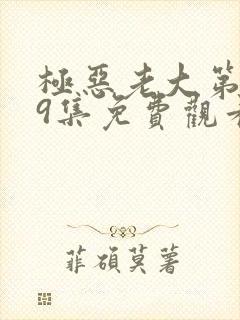 極惡老大第
9集免費觀看
菲碩莫薯